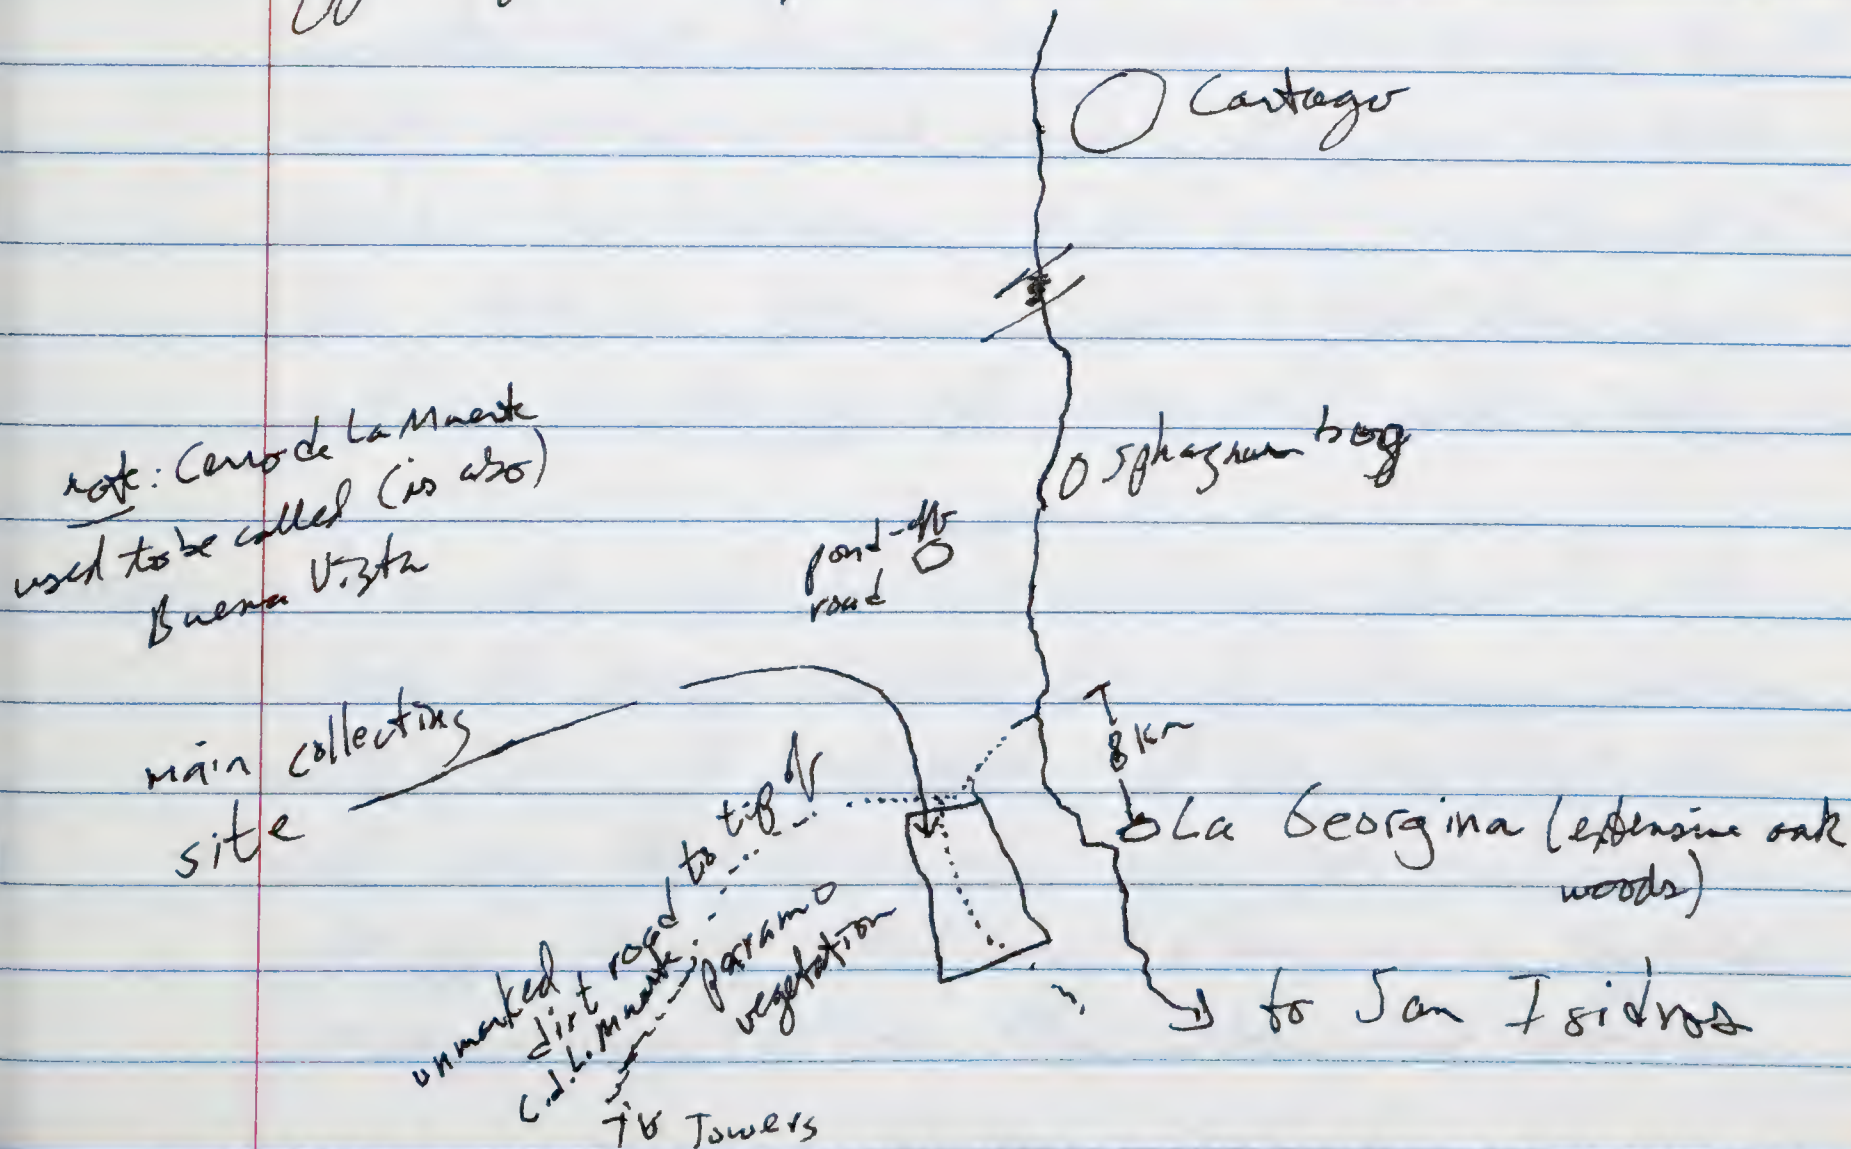 Cartago
sphagnum bog
note: Cerro de La Muerte
used to be called (is also)
Buena Vista
pond-off
road
main collecting
site
8 km
La Georgina (extensive oak
woods)
unmarked
dirt road to tip of
c.d.L. Muerte
paramo
vegetation
TV Towers
to San Isidros